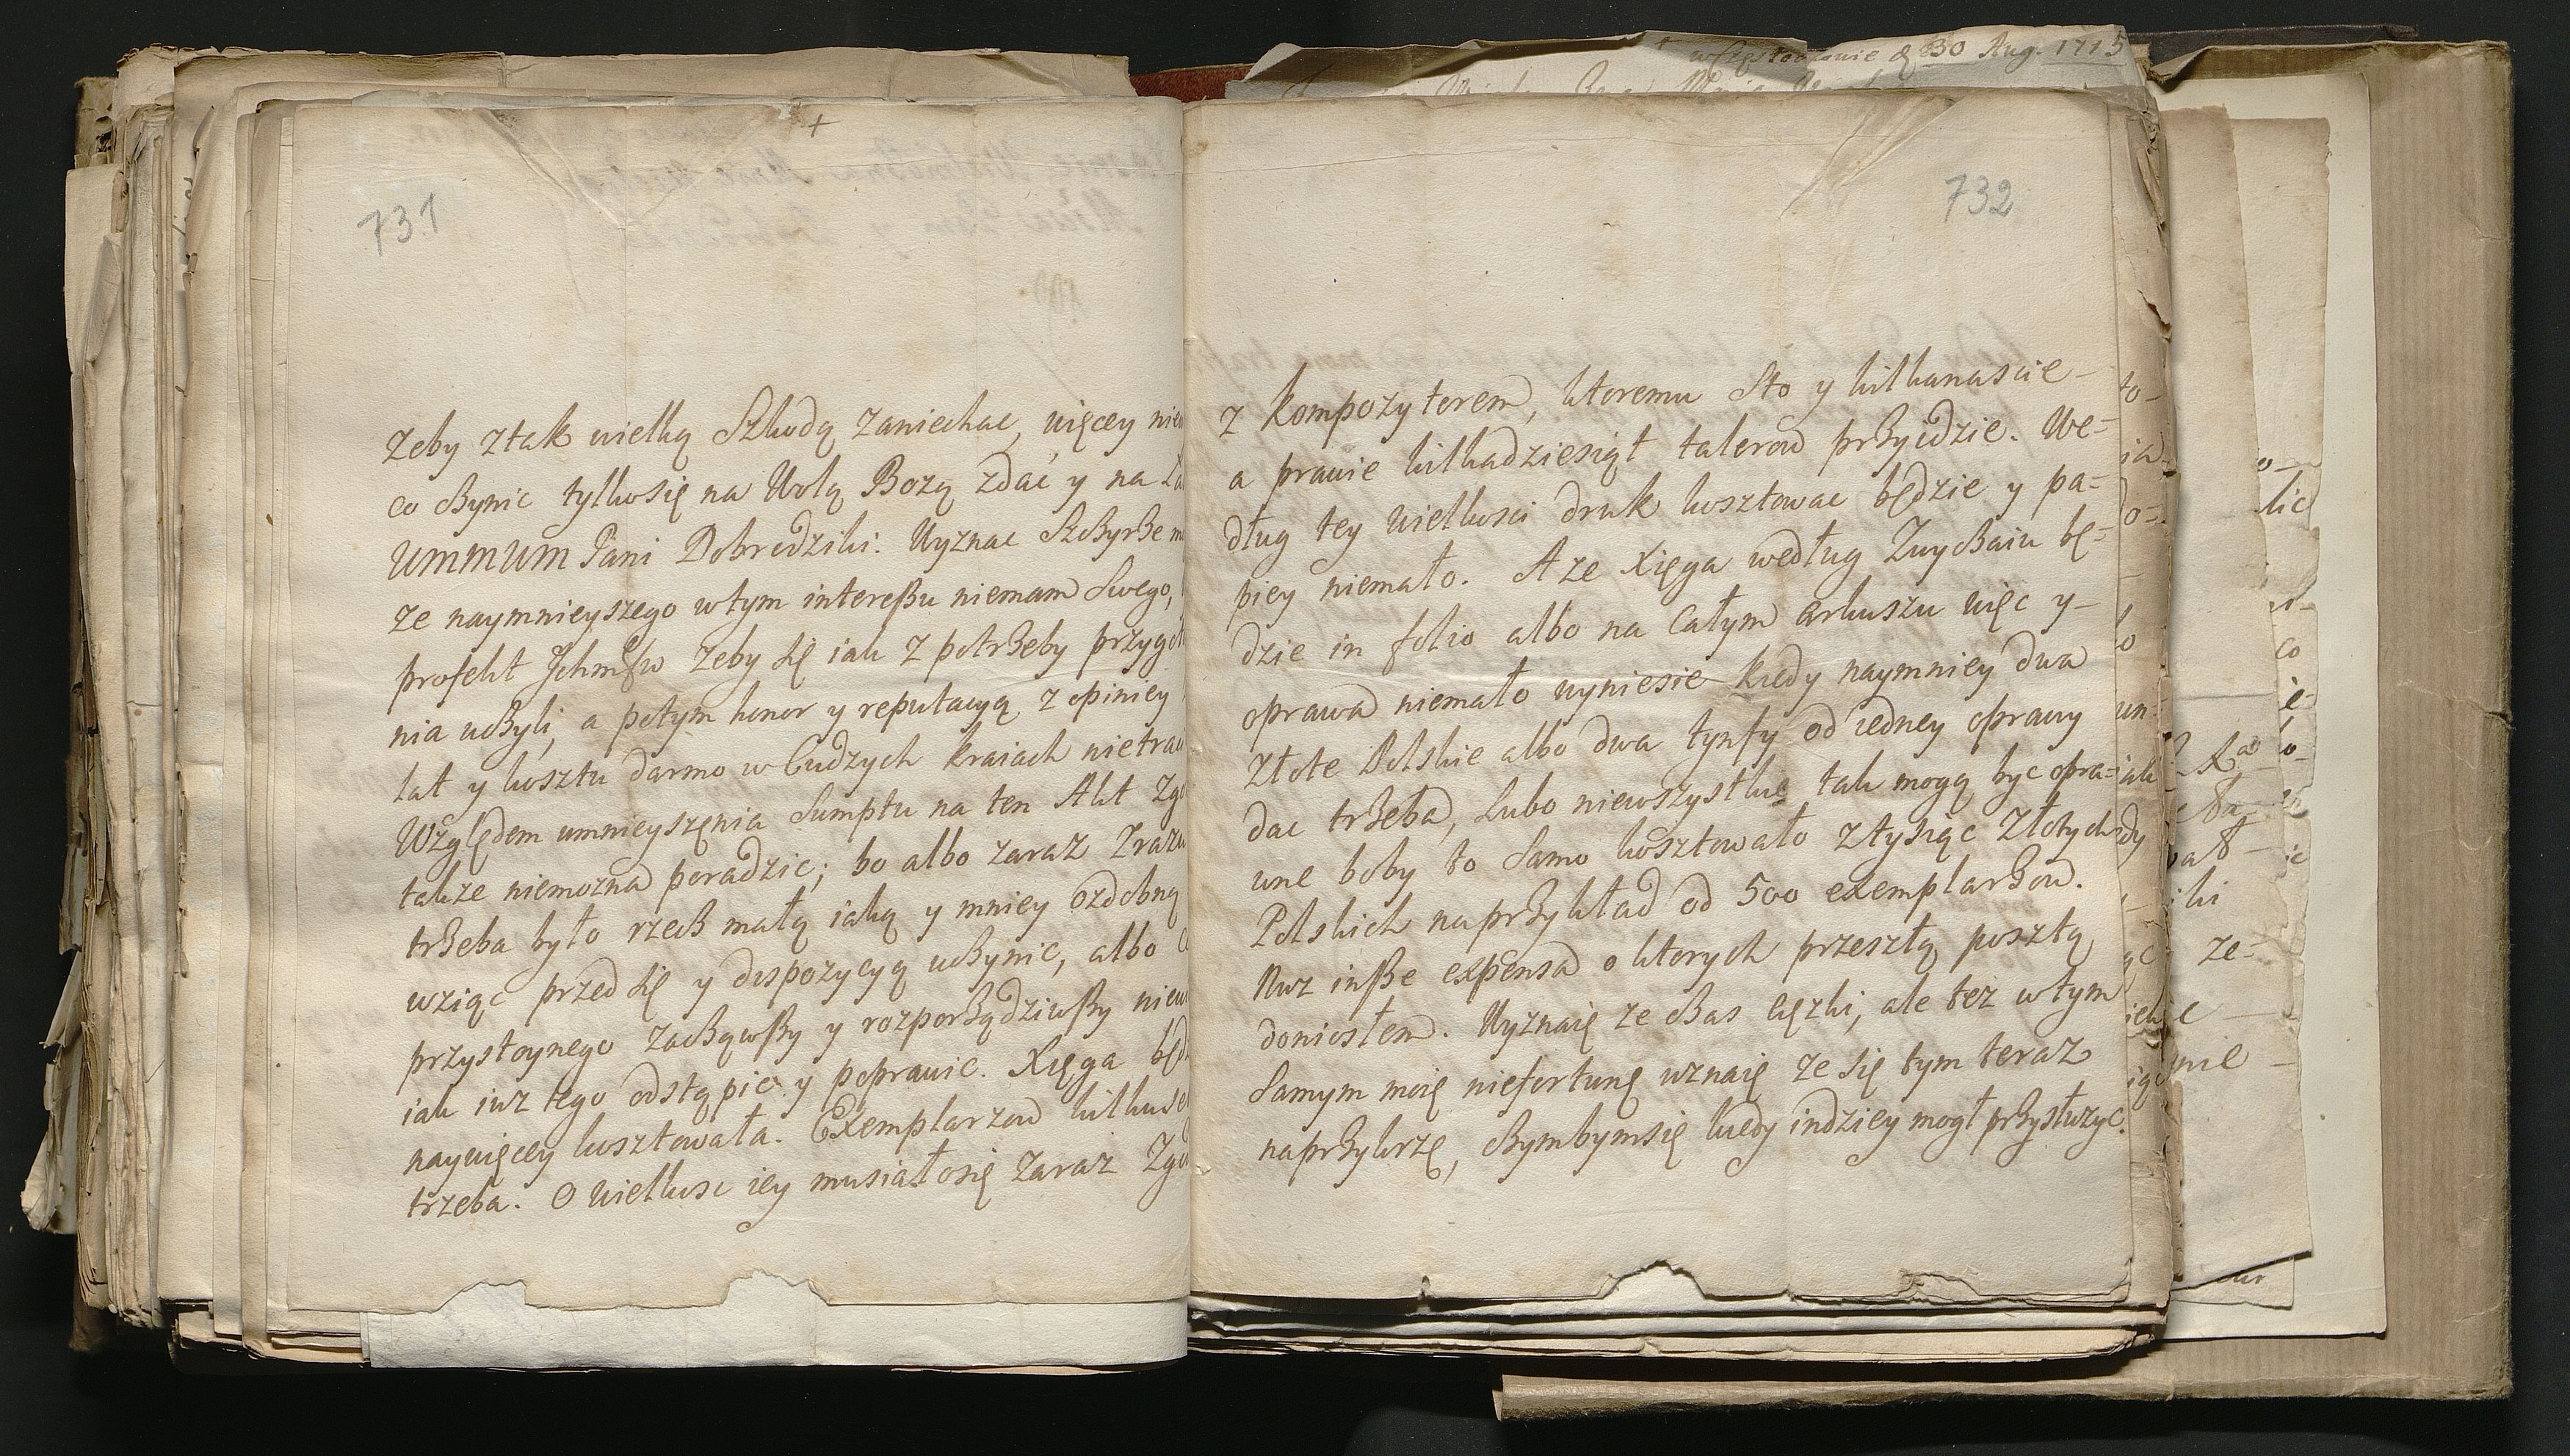 731
+
Zeby ztak wielką Szkodą zaniechac, więcey
co czynic tylkosię na Wolą Bozą zdać y na
UMMUM Pani Dobrodziki. Uyznac szczyrze
ze naymnieyszego wtym interessu niemam Swego,
profekt Jchmsw zeby się iak z potrzeby
nia uczyli, a potym honor y reputacyą z opiniey
lat y kosztu darmo w Cudzych kraiach
Względem umnieyszęnia Sumptu na ten Akt
takze niemozna poradzic; bo albo zaraz
trzeba było rzecz małą iaką y mniey ozdobną
wziąc przed się y dispozycyą uczynic, albo
przystoynego zacząwszy y rozporządziwszy
iak iuz tego odstąpic y poprawic. Xięga
naywięcey kosztowała. Exemplarzow
trzeba. O wielkosc iey musiało się zaraz
732
z Kompozytorem, ktoremu Sto y kilkanascie
a prawie kilkadziesiąt talerow przyidzie. We=
dług tey wielkosci druk kosztowac będzie y pa=
piey niemało. A ze Xięga według Zwyczaiu bę=
dzie in folio albo na Całym arkuszu więc y
oprawa niemało wyniesie kiedy naymniey dwa
Złote Polskie albo dwa tynfy od iedney oprawy
dac trzeba, Lubo niewszystkie tak mogą byc opra=
wne boby to Samo kosztowało ztysiąc Złotych
Polskich naprzykład od 500 exemplarzow.
Nuz insze expensa o ktorych przeszłą posztą
doniosłem. Uyznaię ze czas cięzki, ale tez wtym
Samym moię niefortunę uznaię ze się tym teraz
naprzykrzę, czymbymsię kiedy indziey mogł przysłuzyc.
30 Aug. 1715